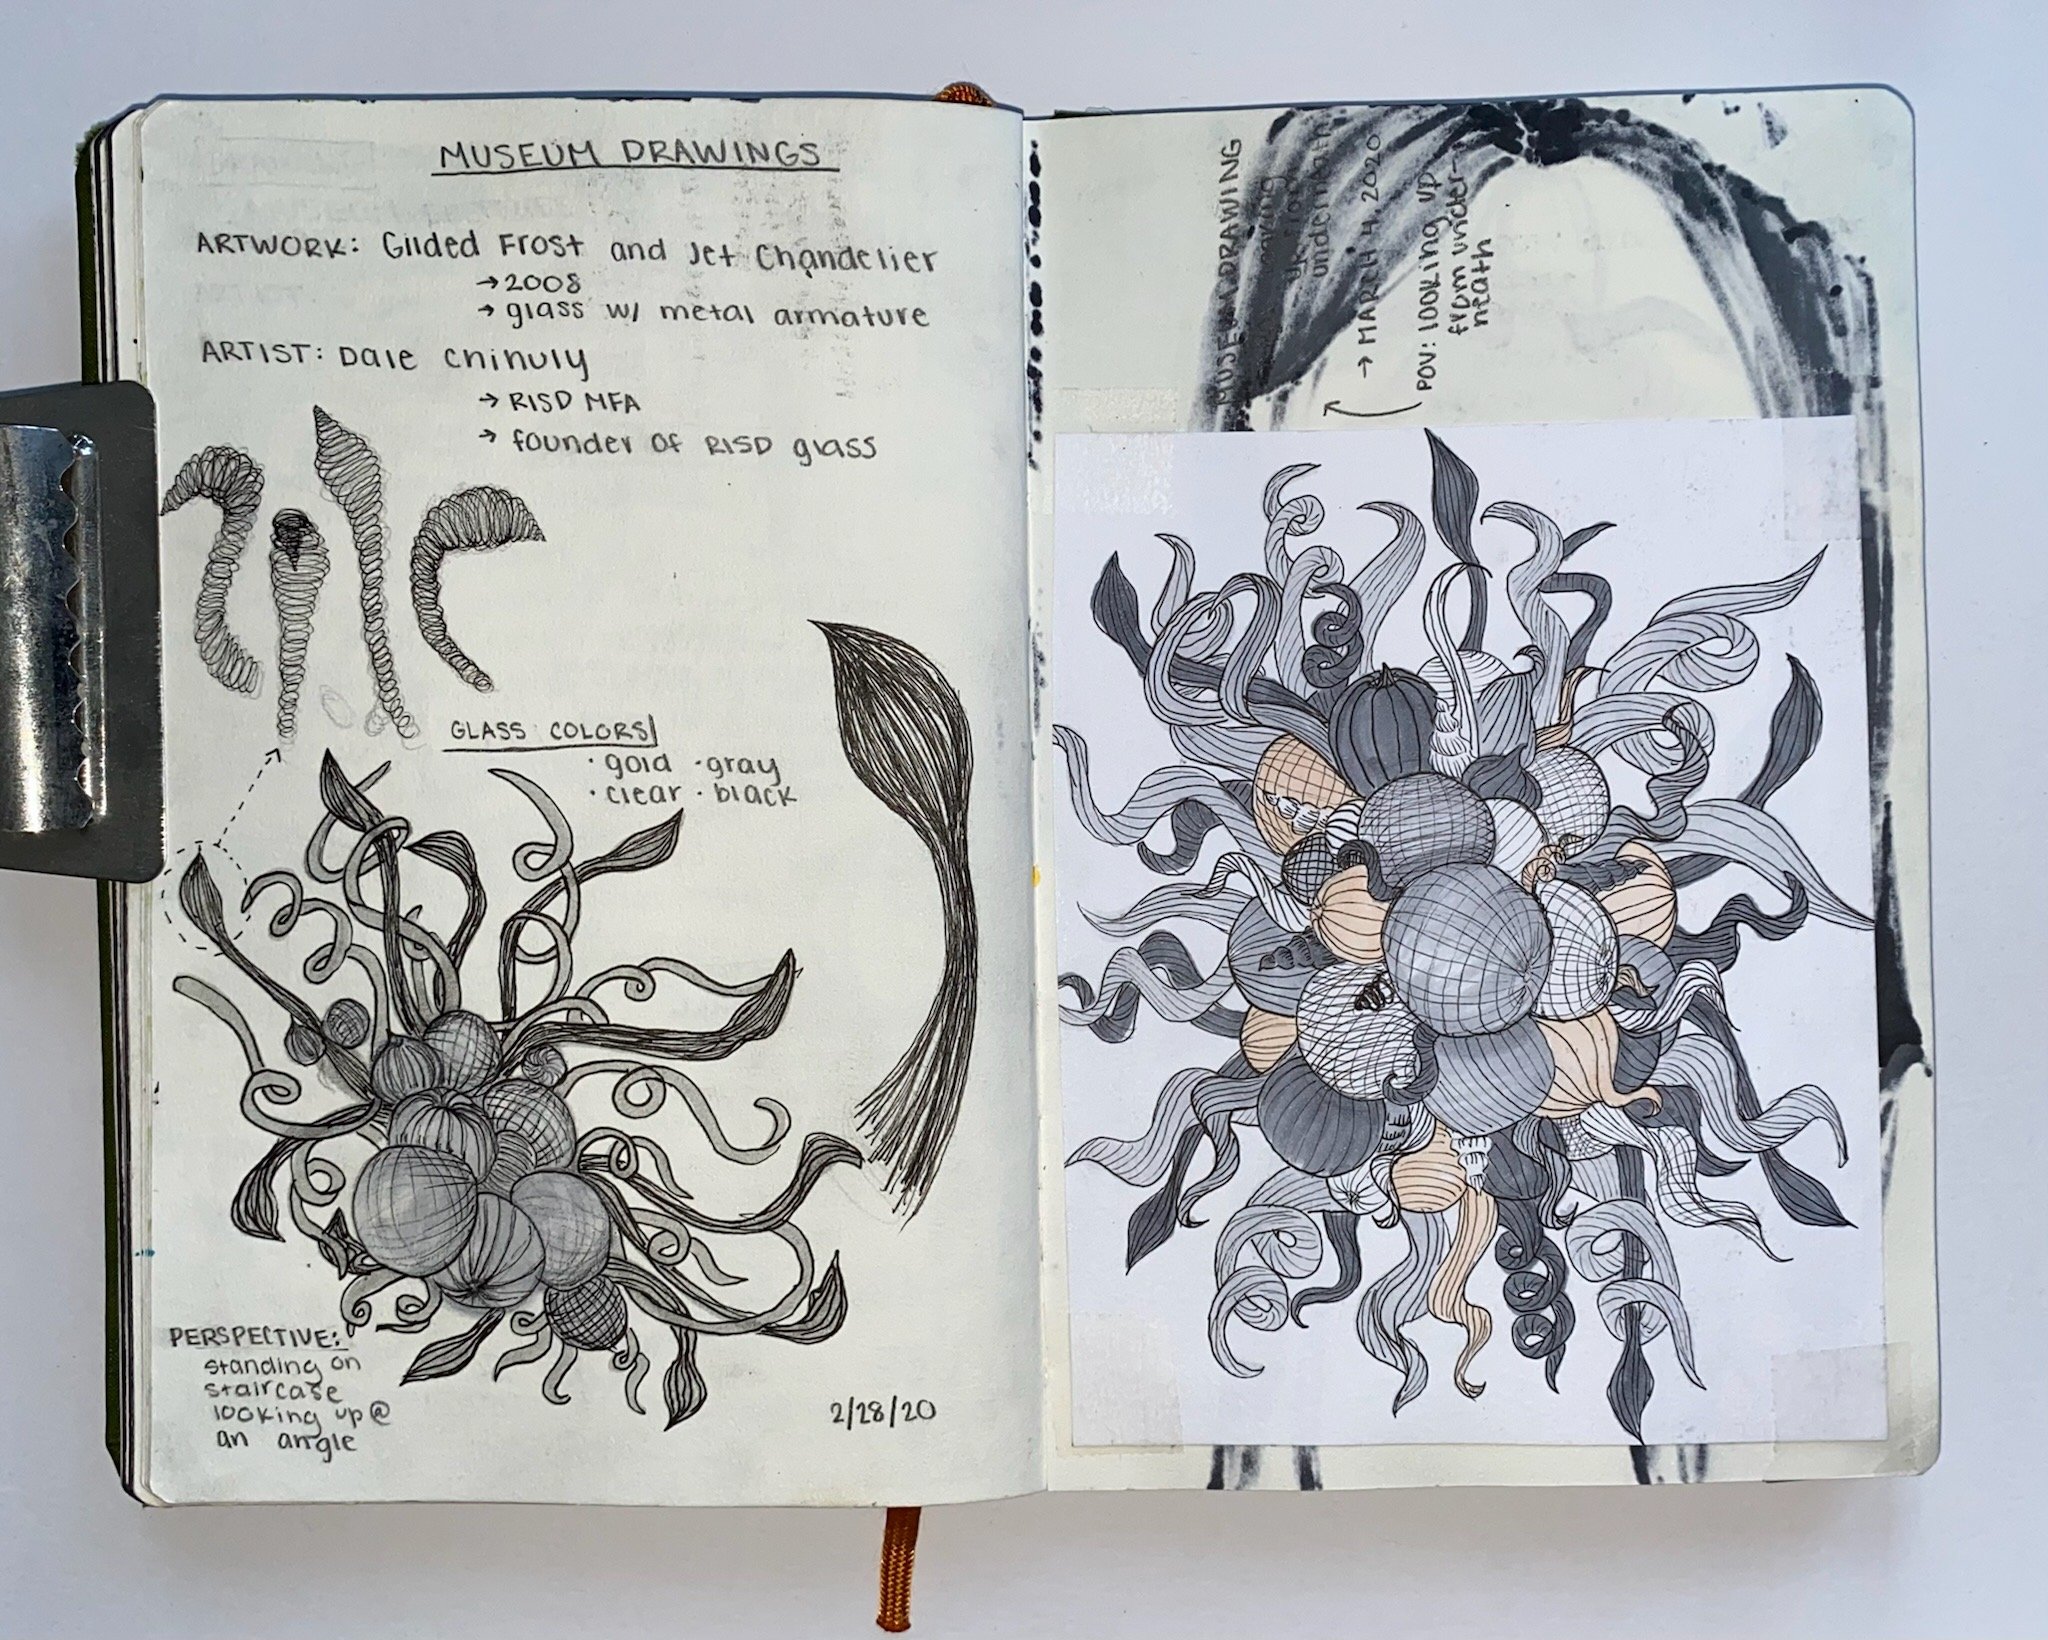 MUSEUM DRAWINGS
ARTWORK: Gilded Frost and Jet Chandelier
→ 2008
→ glass w/ metal armature
ARTIST: Dale Chihuly
→ RISD MFA
→ founder of RISD glass
GLASS COLORS
· gold · gray
· clear · black
PERSPECTIVE:
standing on
staircase
looking up @
an angle
2/28/20
MUSEUM DRAWING
MUSEUM DRAWING
looking
up from
underneath
→ MARCH 4, 2020
POV: looking up
from under-
neath